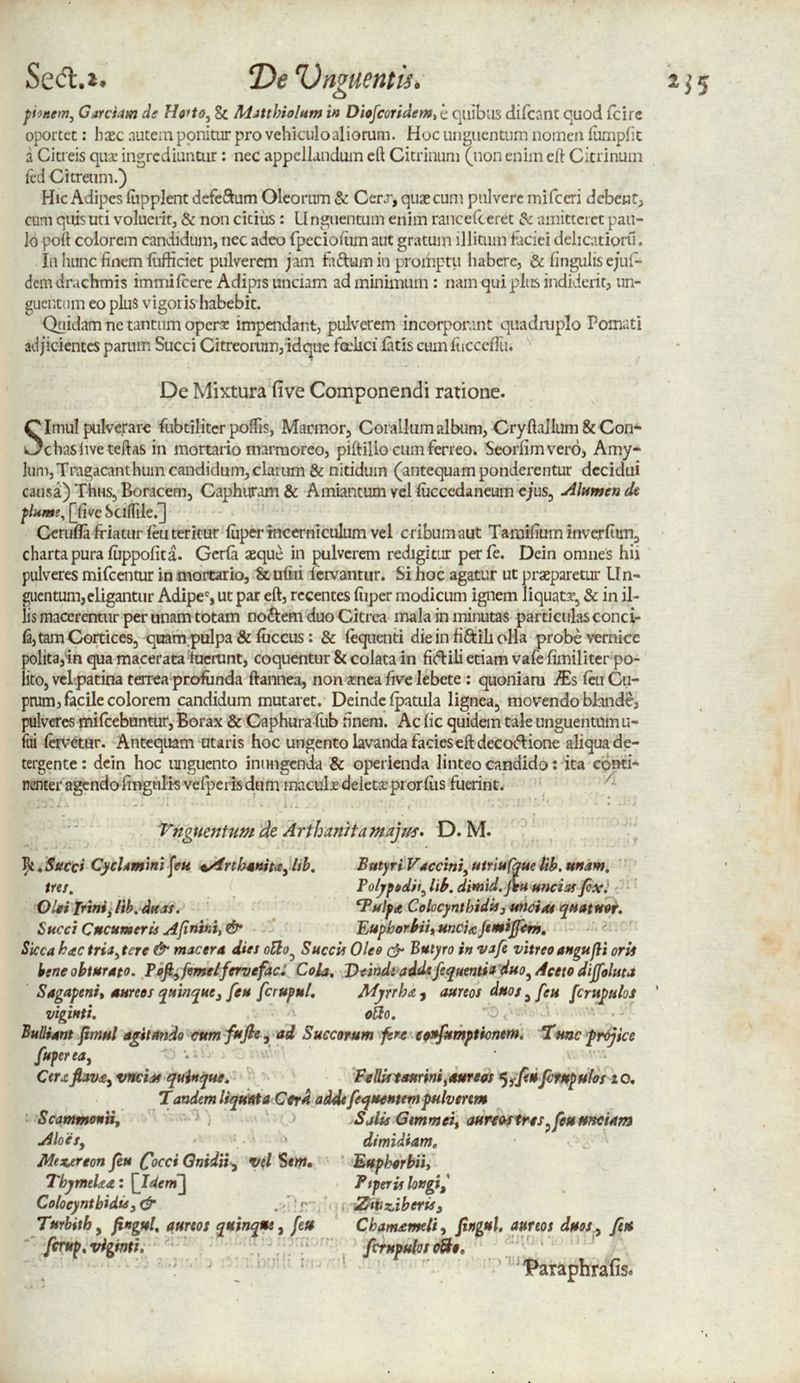 Sect.2. De Vnguentis. 235
pionem, Garciam de Horto, & Matthiolum in Dioscoridem, è quibus discant quod scire
oportet : hæc autem ponitur pro vehiculo aliorum. Hoc unguentum nomen sumpsit
à Citreis quæ ingrediuntur : nec appellandum est Citrinum (non enim est Citrinum
sed Citreum.)
Hic Adipes supplent defectum Oleorum & Ceræ, quæ cum pulvere misceri debent,
cum quis uti voluerit, & non citiùs : Unguentum enim rancesceret & amitteret pau-
lò post colorem candidum, nec adeo speciosum aut gratum illitum faciei delicatiorũ.
In hunc finem sufficiet pulverem jam factum in promptu habere, & singulis ejus-
dem drachmis immiscere Adipis unciam ad minimum : nam qui plus indiderit, un-
guentum eo plus vigoris habebit.
Quidam ne tantum operæ impendant, pulverem incorporant quadruplo Pomati
adjicientes parum Succi Citreorum, idque fœlici satis cum successu.
De Mixtura sive Componendi ratione.
SImul pulverare subtiliter possis, Marmor, Corallum album, Crystallum & Con-
chas sive testas in mortario marmoreo, pistillo cum ferreo. Seorsim verò, Amy-
lum, Tragacanthum candidum, clarum & nitidum (antequam ponderentur decidui
causâ) Thus, Boracem, Caphuram & Amiantum vel succedaneum ejus, Alumen de
plume, [sive Scissile.]
Cerussa friatur seu teritur super incerniculum vel cribum aut Tamisium inversum,
charta pura suppositâ. Gersa æquè in pulverem redigitur per se. Dein omnes hii
pulveres miscentur in mortario, & usui servantur. Si hoc agatur ut præparetur Un-
guentum, eligantur Adipes, ut par est, recentes super modicum ignem liquatæ, & in il-
lis macerentur per unam totam noctem duo Citrea mala in minutas particulas conci-
sa, tam Cortices, quam pulpa & succus : & sequenti die in fictili olla probè vernice
polita, in qua macerata fuerunt, coquentur & colata in fictili etiam vase similiter po-
lito, vel patina terrea profunda stannea, non ænea sive lebete : quoniam Æs seu Cu-
prum, facile colorem candidum mutaret. Deinde spatula lignea, movendo blandè,
pulveres miscebuntur, Borax & Caphura sub finem. Ac sic quidem tale unguentum u-
sui servetur. Antequam utaris hoc ungento lavanda facies est decoctione aliqua de-
tergente : dein hoc unguento inungenda & operienda linteo candido : ita conti-
nenter agendo singulis vesperis dum maculæ deletæ prorsus fuerint.
Vnguentum de Arthanita majus. D. M.
℞. Succi Cyclamini seu Arthanitæ, lib. tres.
Olei Irini, lib. duas.
Succi Cucumeris Asinini, &
Butyri Vaccini, utriusque lib. unam.
Polypodii, lib. dimid. seu uncias sex.
Pulpæ Colocynthidis, uncias quatuor.
Euphorbii, unciæ semissem.
Sicca hæc tria, tere & macera dies octo, Succis Oleo & Butyro in vase vitreo angusti oris
bene obturato. Post, semel fervefac. Cola. Deinde adde sequentia duo, Aceto dissoluta
Sagapeni, aureos quinque, seu scrupul.
viginti.
Myrrhæ, aureos duos, seu scrupulos
octo.
Bulliant simul agitando cum fuste, ad Succorum fere consumptionem. Tunc projice
super ea,
Ceræ flavæ, vncias quinque. Fellis taurini, aureos 5, seu scrupulos 20.
Tandem liquata Cerâ adde sequentem pulverem
Scammonii,
Aloës,
Mezereon seu Cocci Gnidii, vel Sem.
Thymelææ : [Idem]
Colocynthidis, &
Turbith, singul. aureos quinque, seu
scrup. viginti.
Salis Gemmei, aureos tres, seu unciam
dimidiam.
Euphorbii,
Piperis longi,
Zinziberis,
Chamæmeli, singul. aureos duos, seu
scrupulos octo.
Paraphrasis.